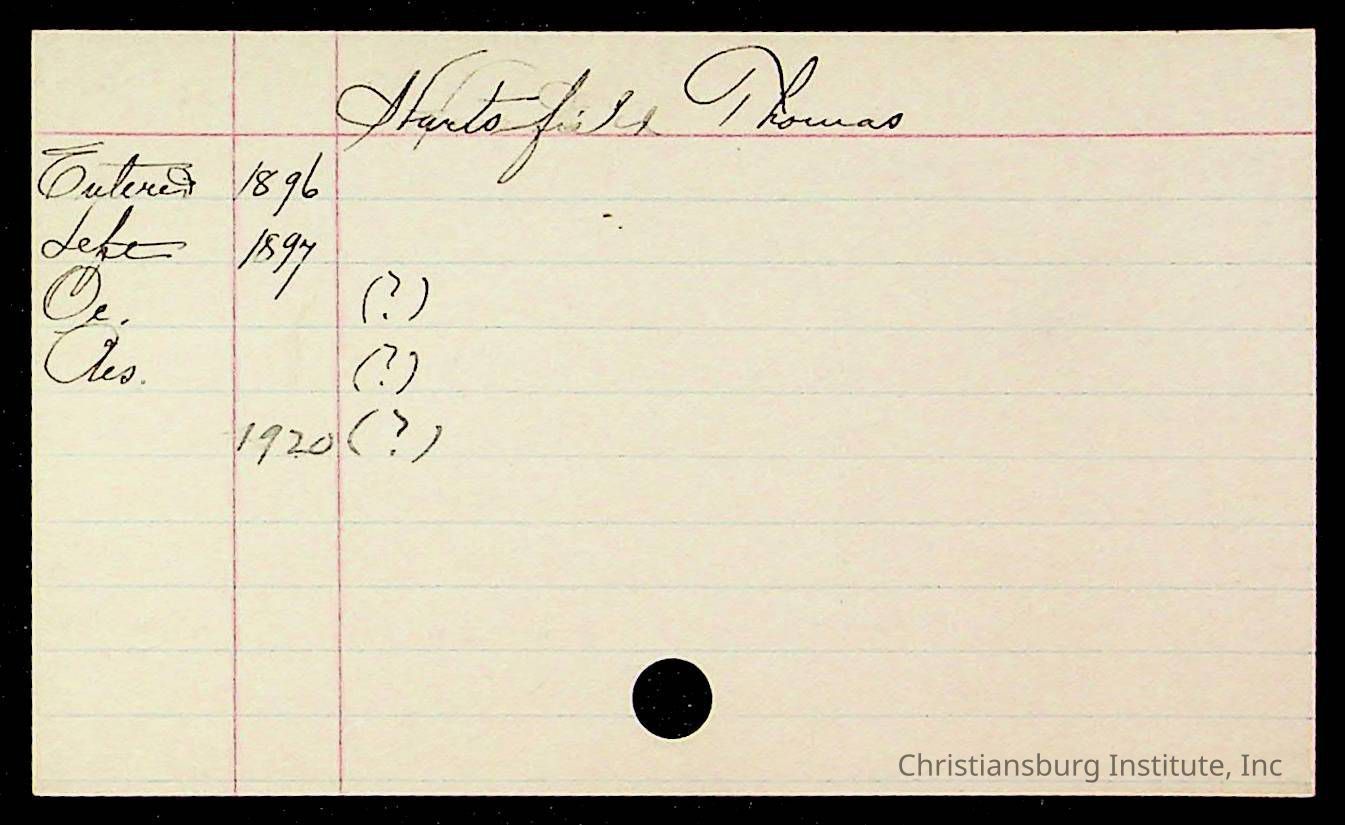 Hartsfield Thomas
Entered 1896
Left 1897
Oc. (?)
Res. (?)
1920 (?)
Christiansburg Institute, Inc